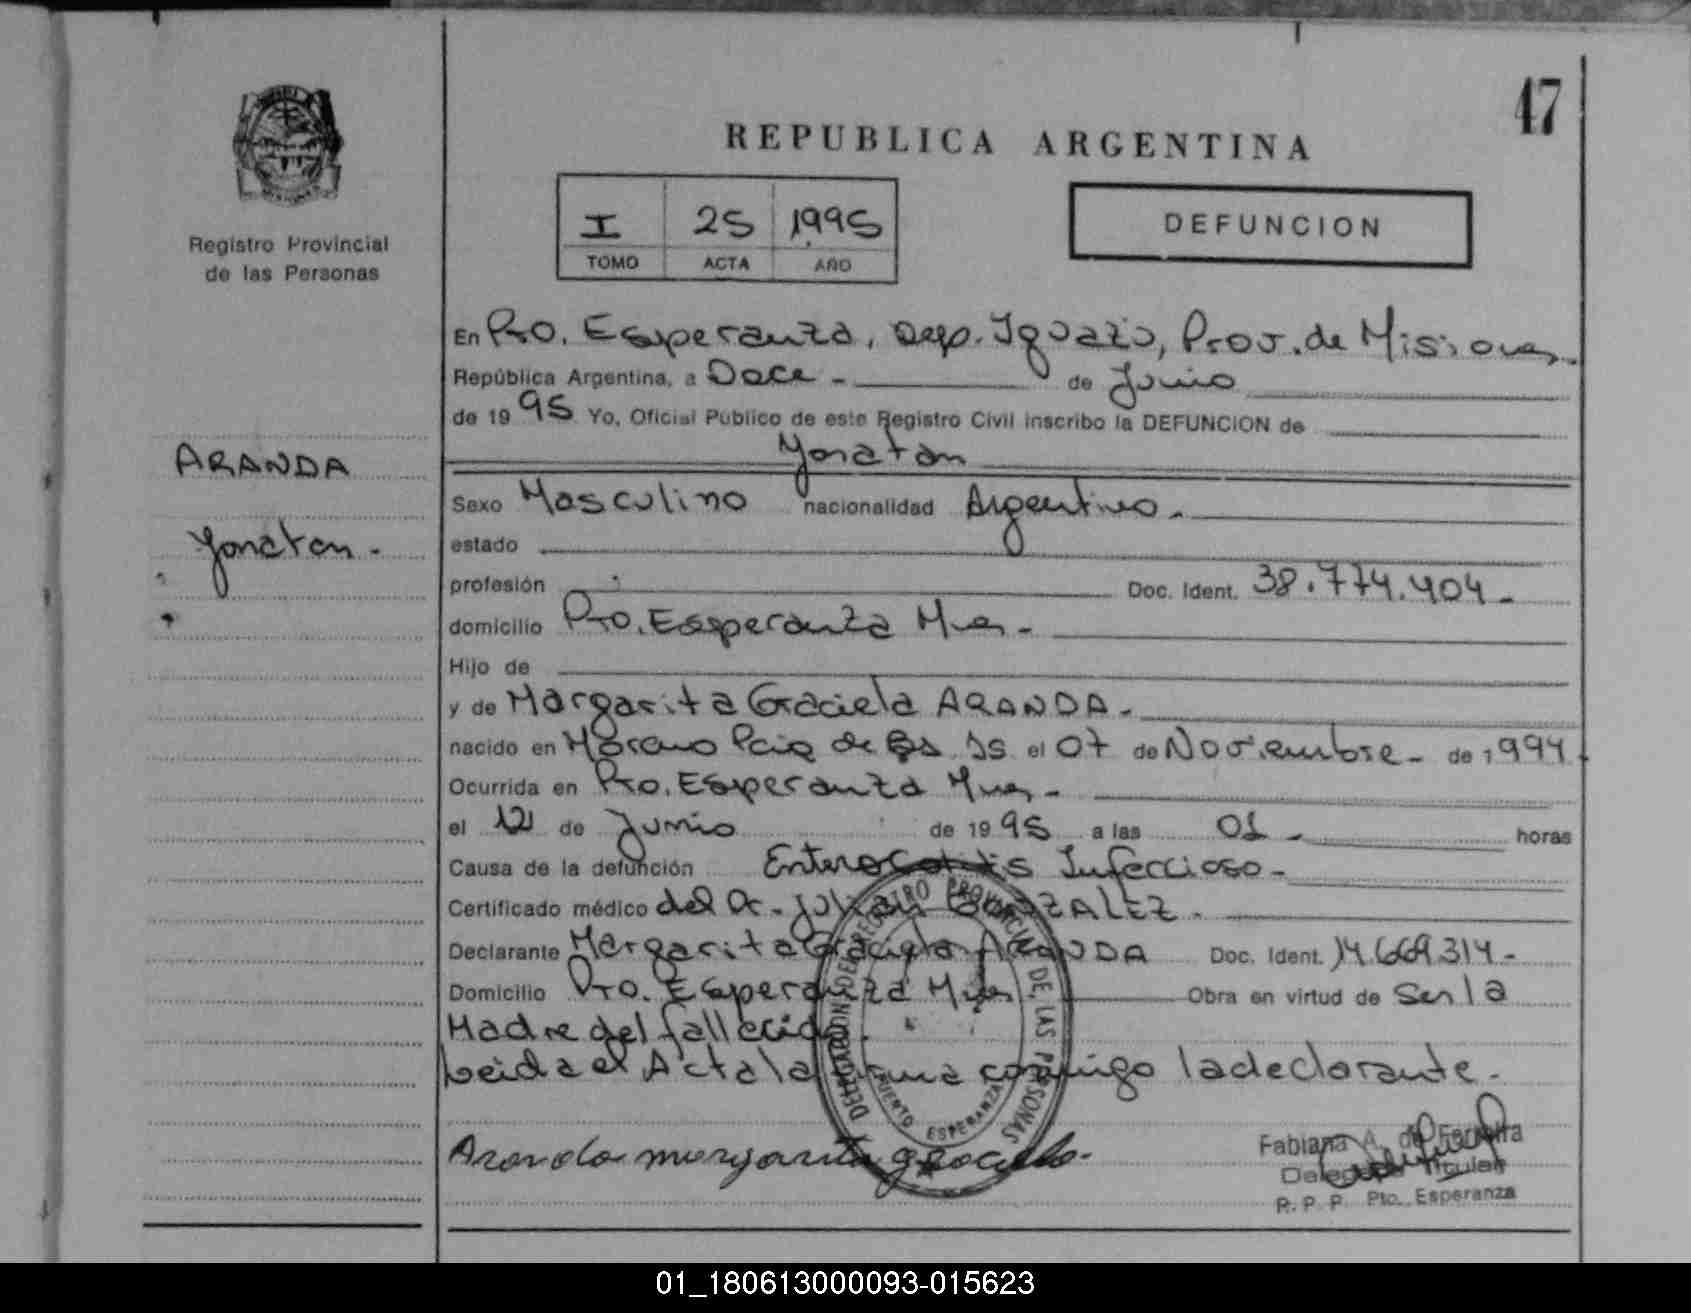 47
REPUBLICA ARGENTINA
I 25 1995
TOMO ACTA AÑO
DEFUNCION
Registro Provincial
de las Personas
ARANDA
Yonatan -
En Pto. Esperanza, Dep. Iguazú, Prov. de Misiones
República Argentina, a Doce - de Junio
de 1995 Yo, Oficial Público de este Registro Civil inscribo la DEFUNCION de
Yonatan
Sexo Masculino nacionalidad Argentino -
estado
profesión Doc. Ident. 38.774.404 -
domicilio Pto. Esperanza Mnes -
Hijo de
y de Margarita Graciela ARANDA -
nacido en Moreno Pcia de Bs As el 07 de Noviembre - de 1994
Ocurrida en Pto. Esperanza Mnes -
el 12 de Junio de 1995 a las 01 - horas
Causa de la defunción Enterocolitis Infeccioso -
Certificado médico del Dr. Julian GONZALEZ -
Declarante Margarita Graciela ARANDA Doc. Ident. 14.669.314 -
Domicilio Pto. Esperanza Mnes Obra en virtud de Ser la
Madre del fallecido.
Leida el Acta la firma conmigo la declarante -
DELEGACION DEL REGISTRO PROVINCIAL DE LAS PERSONAS
PUERTO ESPERANZA
Aranda margarita graciela -
Fabiana A. de Ferreira
Delegada Titular
R. P. P. Pto. Esperanza
01_180613000093-015623